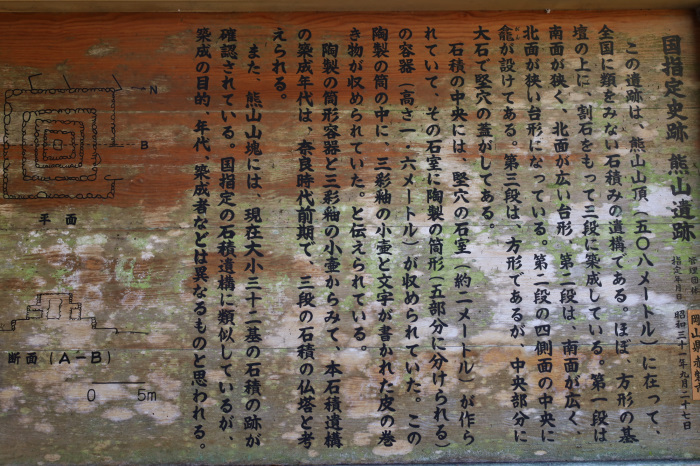 国指定史跡 熊山遺跡
管理団体 岡山県赤磐市
指定年月日 昭和三十一年九月二十七日
この遺跡は、熊山山頂(五〇八メートル)に在って、
全国に類をみない石積みの遺構である。ほぼ、方形の基
壇の上に、割石をもって三段に築成している。第一段は
南面が狭く、北面が広い台形、第二段は、南面が広く、
北面が狭い台形になっている。第二段の四側面の中央に
龕が設けてある。第三段は、方形であるが、中央部分に
大石で竪穴の蓋がしてある。
石積の中央には、竪穴の石室(約二メートル)が作ら
れていて、その石室に陶製の筒形(五部分に分けられる)
の容器(高さ一・六メートル)が収められていた。この
陶製の筒の中に、三彩釉の小壷と文字が書かれた皮の巻
き物が収められていた。と伝えられている。
陶製の筒形容器と三彩釉の小壷からみて、本石積遺構
の築成年代は、奈良時代前期で、三段の石積の仏塔と考
えられる。
また、熊山山塊には、現在大小三十二基の石積の跡が
確認されている。国指定の石積遺構に類似しているが、
築成の目的、年代、築成者などは異なるものと思われる。
N
B
平面
断面(A-B)
0 5m